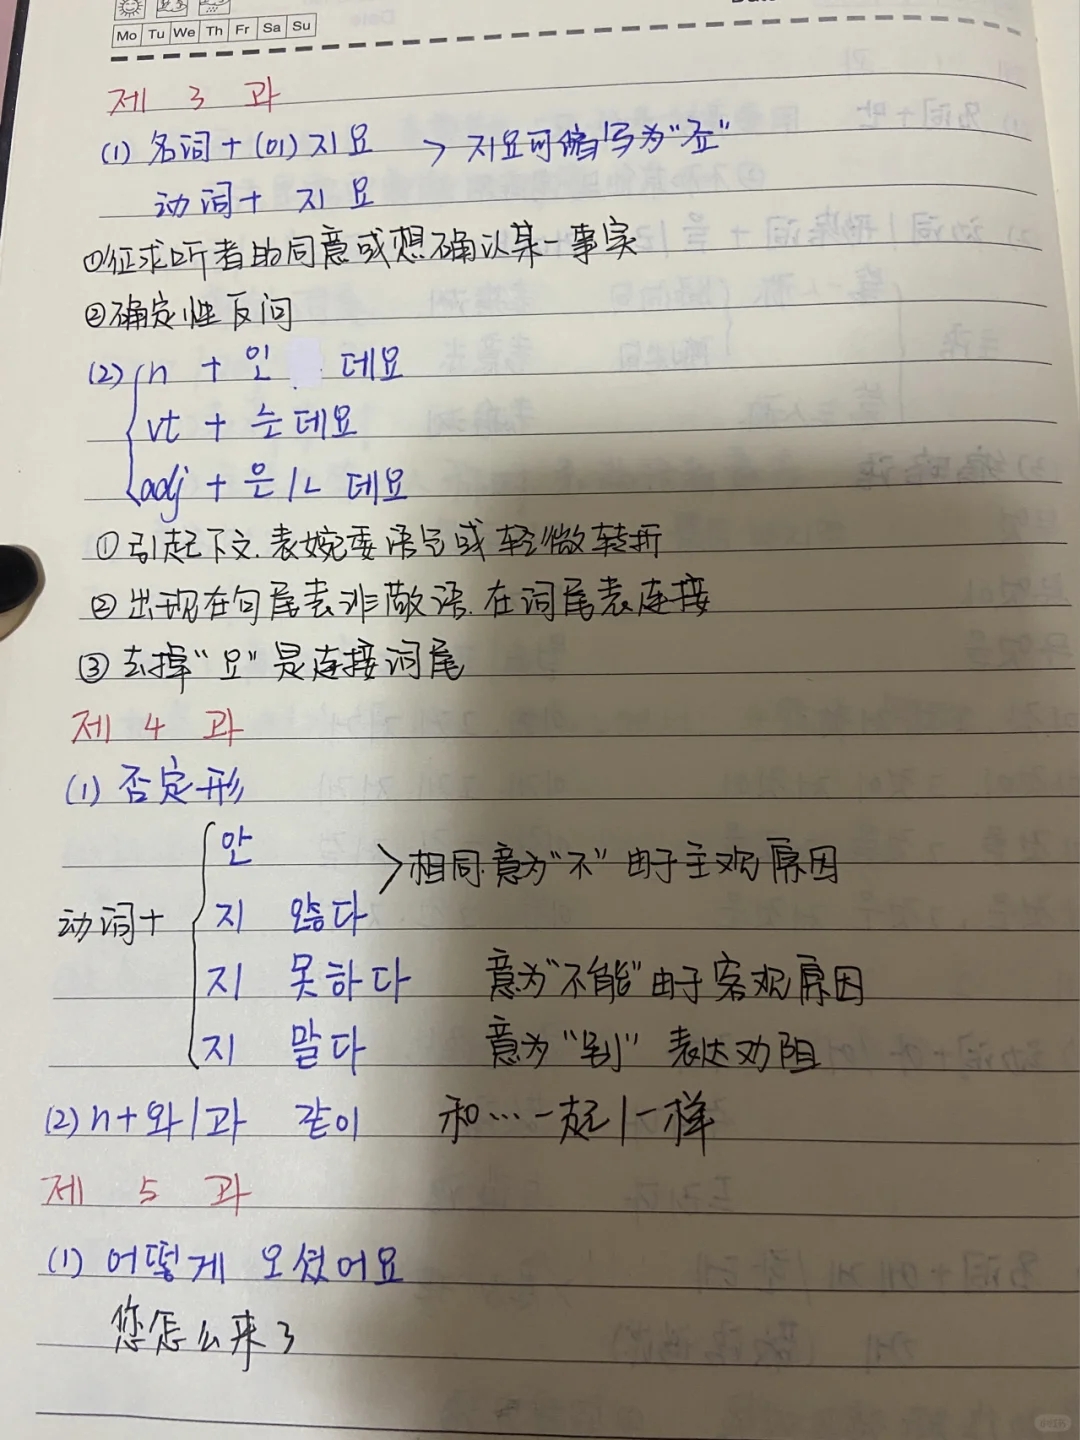 Mo Tu We Th Fr Sa Su
제 3 과
(1) 名词 + (이) 지요 > 지요可缩写为"죠"
动词 + 지요
①征求听者的同意或想确认某一事实
②确定性反问
(2) n + 인 데요
vt + 는데요
adj + 은/ㄴ 데요
①引起下文.表婉委语气或轻微转折
②出现在句尾表非敬语.在词尾表连接
③去掉"요"是连接词尾
제 4 과
(1) 否定形
안
>相同.意为"不"由于主观原因
动词+
지 않다
지 못하다 意为"不能"由于客观原因
지 말다 意为"别" 表达劝阻
(2) n+와/과 같이 和…一起/一样
제 5 과
(1) 어떻게 오셨어요
您怎么来了